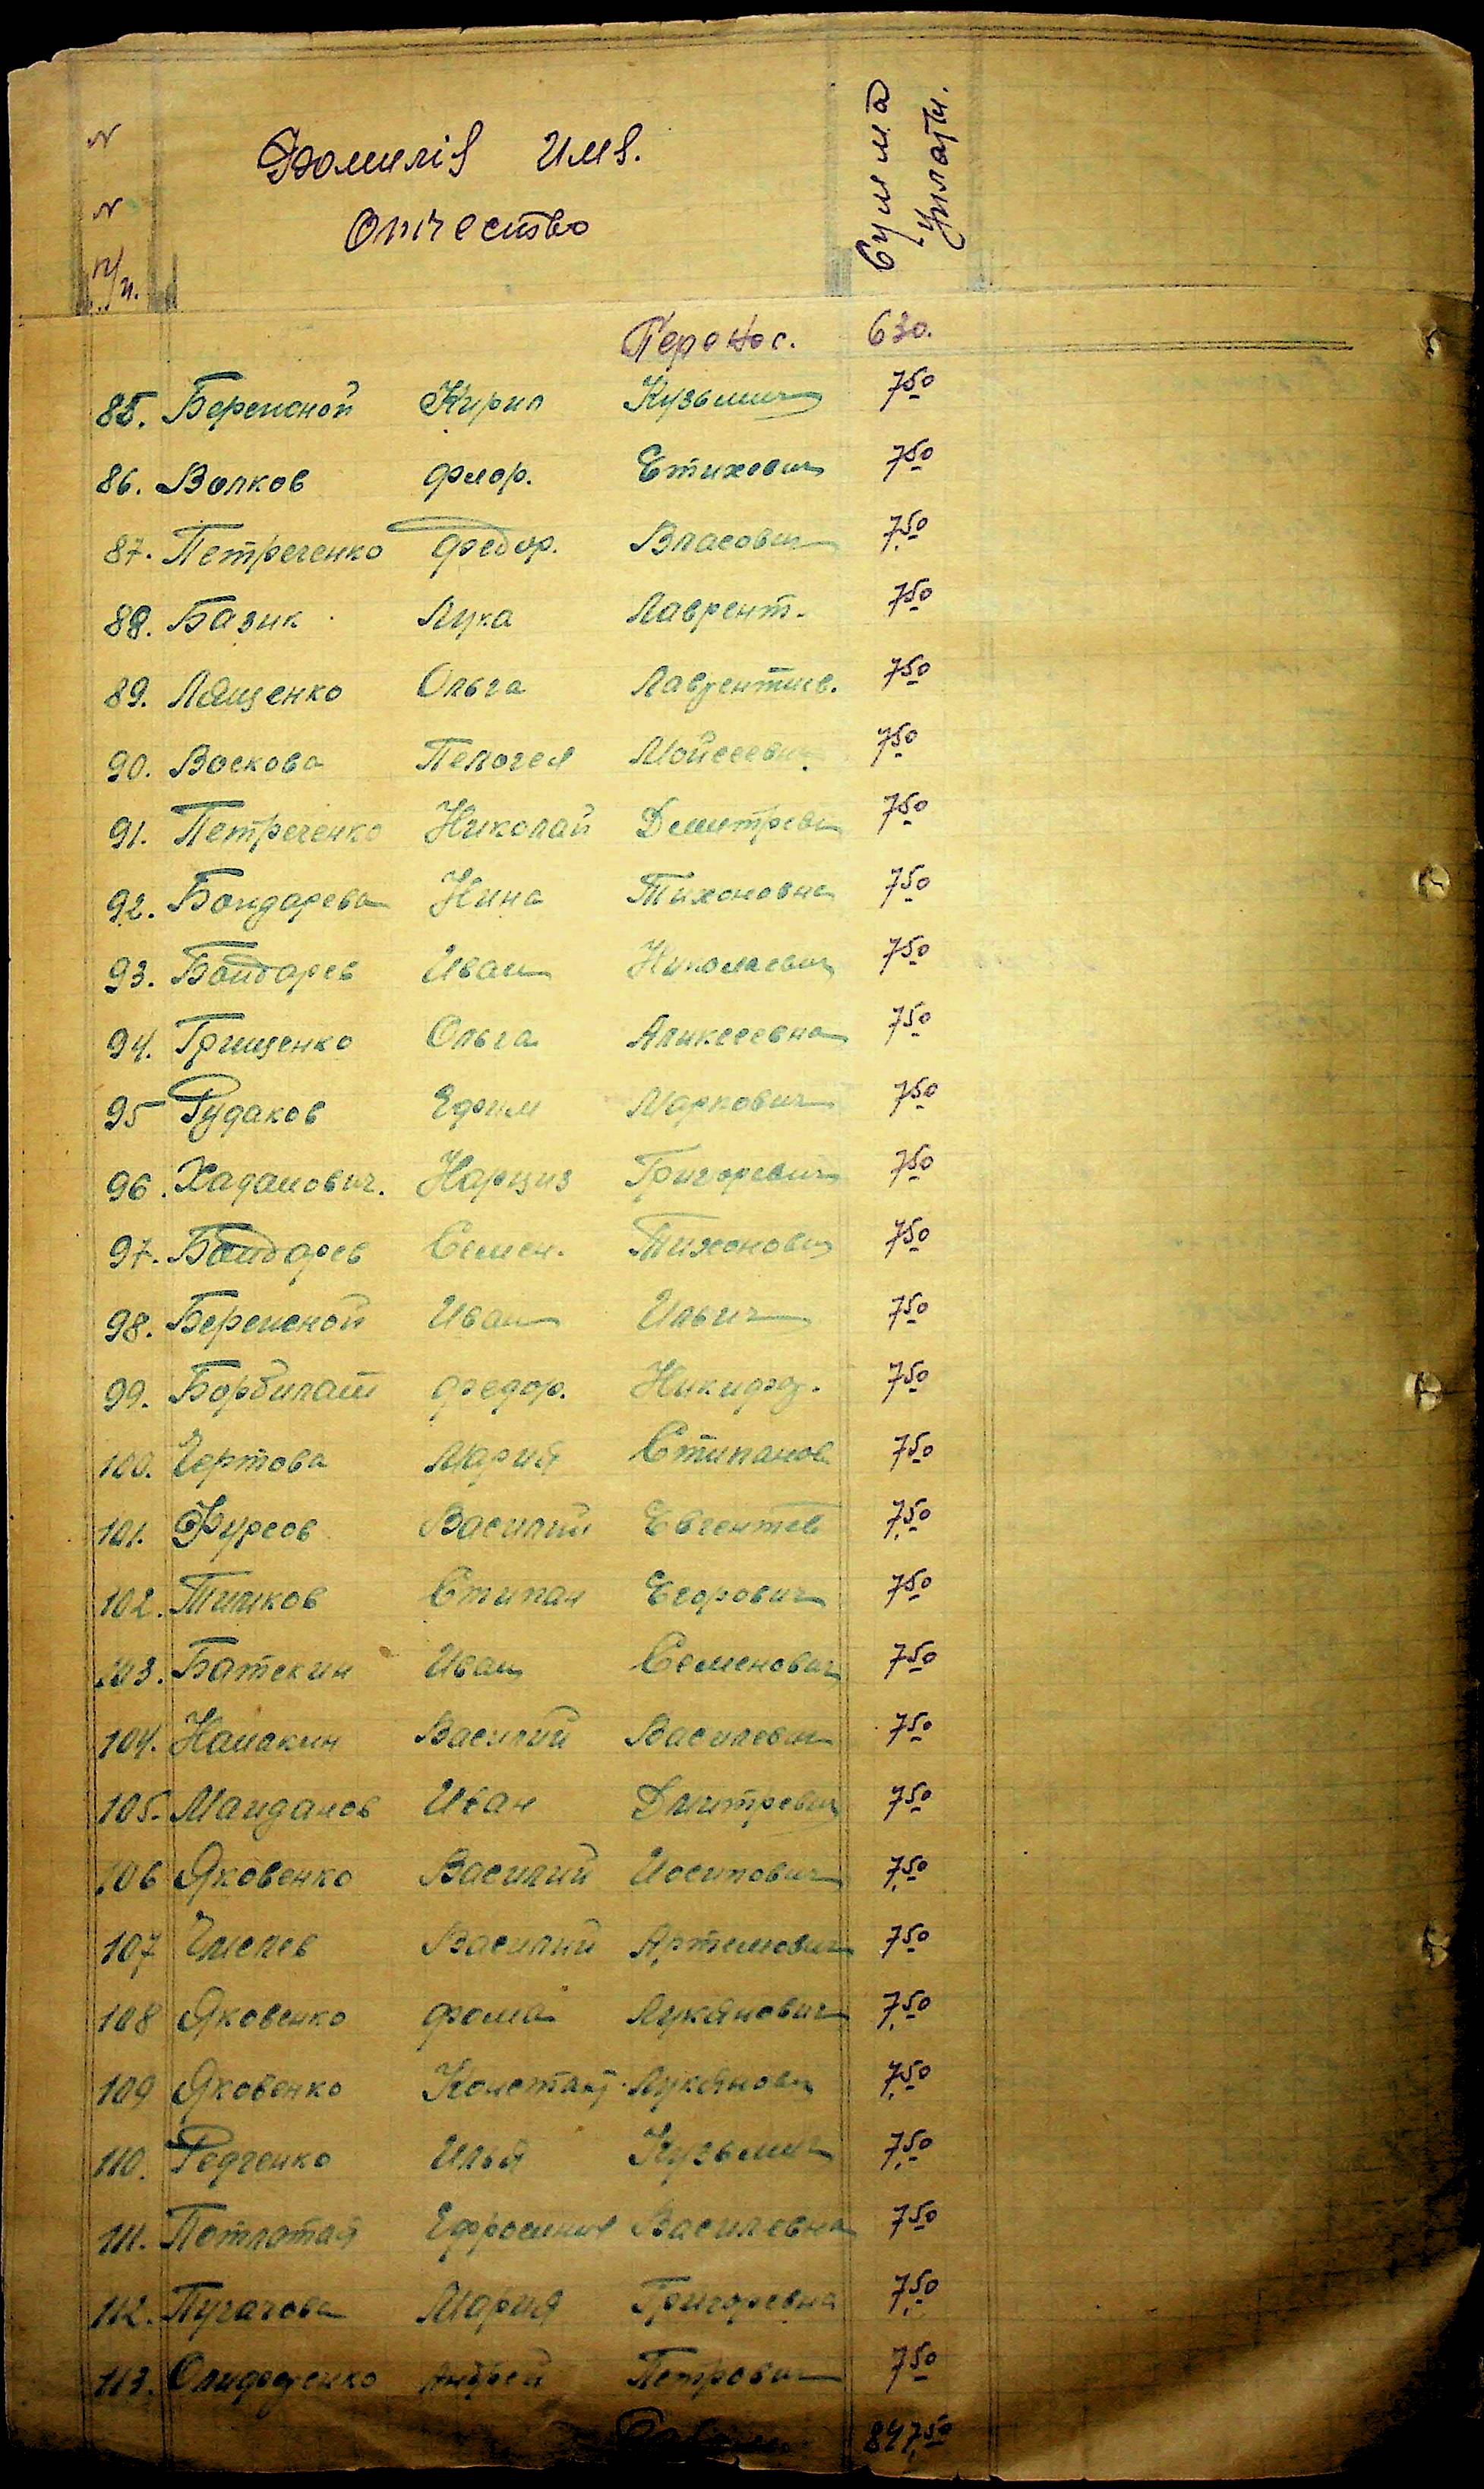 N Фомилія Имя. Сумма
N Отчество уплаты.
п/п.
Перенос. 630.
85. Бережной Кирил Кузьмич 7.50
86. Волков Флор. Етихович 7.50
87. Петреченко Федор. Власович 7.50
88. Базик Лука Лаврент. 7.50
89. Лященко Ольга Лаврентиев. 7.50
90. Воскова Пелогея Мойсеевн. 7.50
91. Петреченко Николай Дмитреви 7.50
92. Бондарева Нина Тихоновна 7.50
93. Бондарев Иван Николаевич 7.50
94. Грищенко Ольга Аликсеевна 7.50
95 Рудаков Ефим Маркович 7.50
96. Хаданович. Нарциз Григоревич 7.50
97. Бондарев Семен. Тихонович 7.50
98. Бережной Иван Ильич 7.50
99. Борбилат Федор. Никифор. 7.50
100. Чертова Мария Стипанов 7.50
101. Фурсов Василий 7.50
102. Стипан Егорович 7.50
103. Батекин Иван Семенович 7.50
104. Василий Василевич 7.50
105. Майданов Иван Дмитревич 7.50
106 Яковенко Василий Иосипович 7.50
107 Василий Артемович 7.50
108 Яковенко Фома Лукянович 7.50
109 Яковенко Констант. Лукянович 7.50
110. Редченко Илья Кузьмич 7.50
111. Ефросиния Василевна 7.50
112. Пугачова Мария Григоревна 7.50
113. Андрей Петрович 7.50
847.50